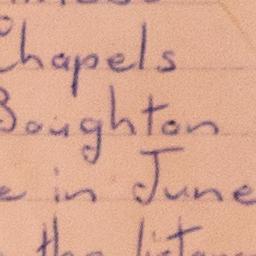 Chapels
Boughton
e in June
the